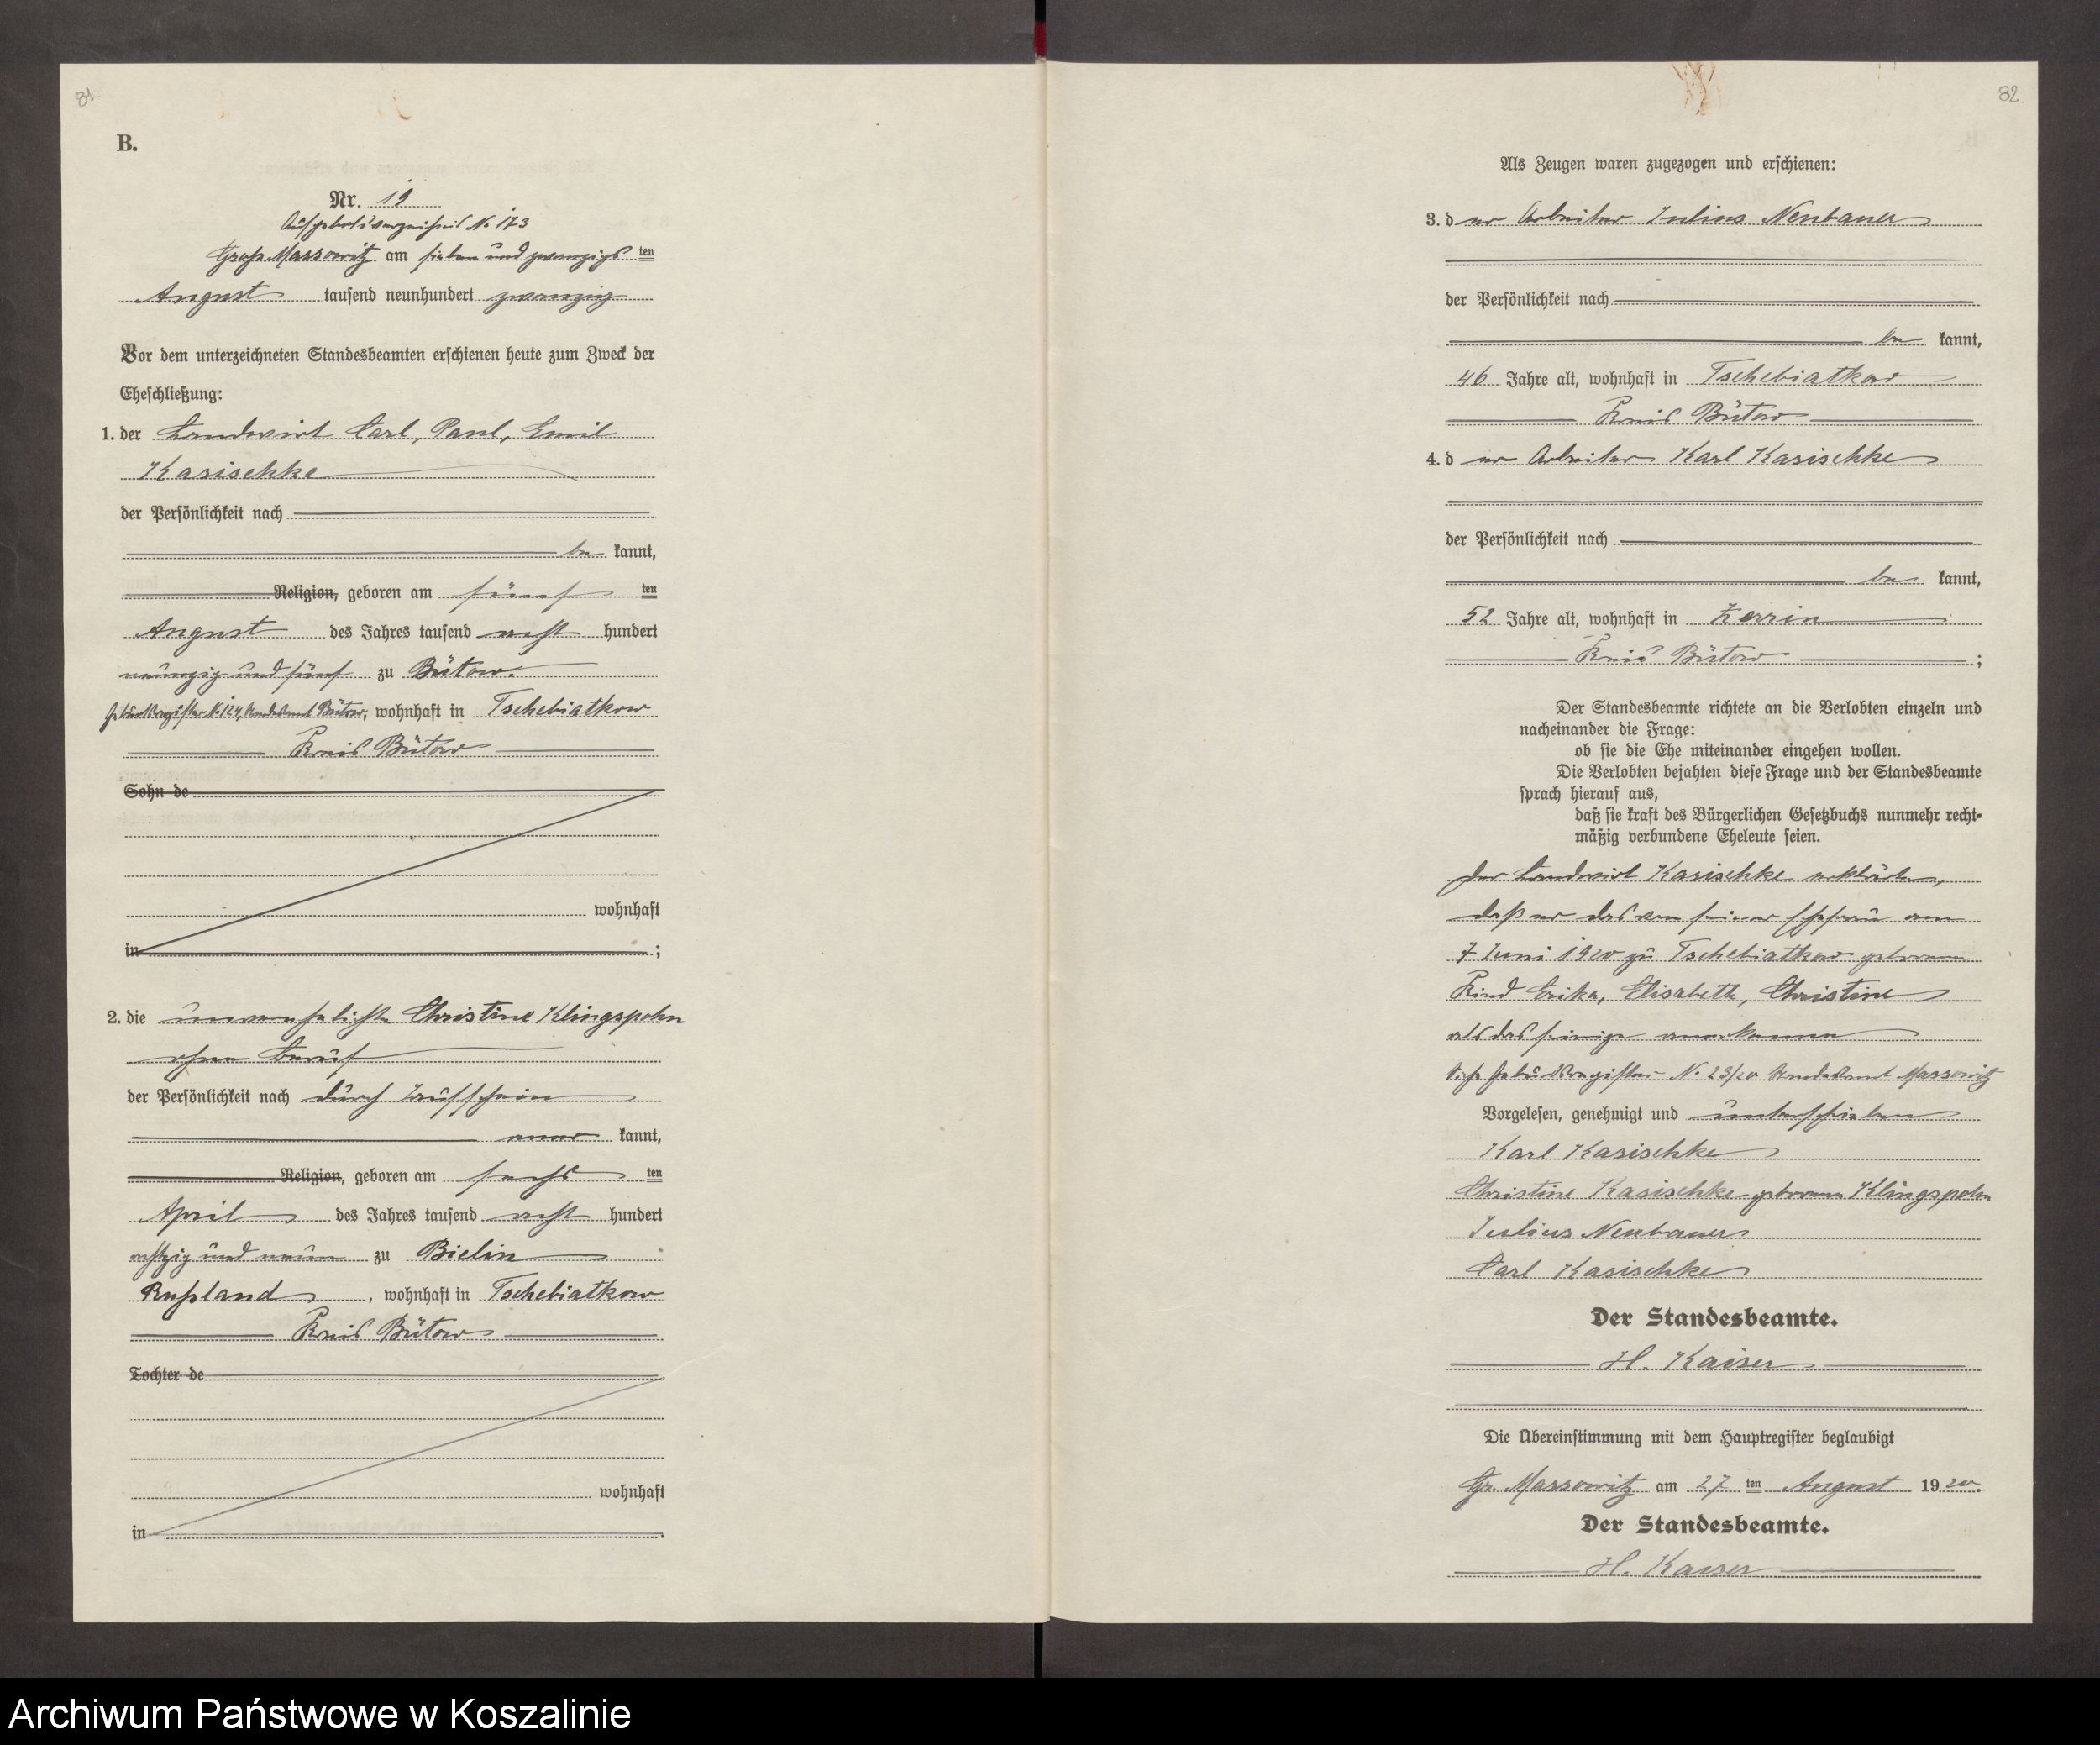 81.
B.
Nr. 19
Aufgebotsverzeichnis No 173
Groß Massowitz am sieben und zwanzigs ten
August tausend neunhundert zwanzig
Vor dem unterzeichneten Standesbeamten erschienen heute zum Zweck der
Eheschließung:
1. der Landwirt Carl, Paul, Emil
Kasischke
der Persönlichkeit nach
be kannt,
Religion, geboren am fünf ten
August des Jahres tausend acht hundert
neunzig und fünf zu Bütow.
Geburtsregister No 124, Standesamt Bütow, wohnhaft in Tschebiatkow
Kreis Bütow
Sohn de
wohnhaft
in ;
2. die unverehelichte Christine Klingspohn
ohne Beruf
der Persönlichkeit nach durch Taufschein
aner kannt,
Religion, geboren am sechs ten
April des Jahres tausend acht hundert
achtzig und neun zu Bielin
Rußland, wohnhaft in Tschebiatkow
Kreis Bütow
Tochter de
wohnhaft
in .
82
Als Zeugen waren zugezogen und erschienen:
3. d er Arbeiter Julius Neubauer
der Persönlichkeit nach
be kannt,
46 Jahre alt, wohnhaft in Tschebiatkow
Kreis Bütow
4. d er Arbeiter Karl Kasischke
der Persönlichkeit nach
be kannt,
52 Jahre alt, wohnhaft in Zerrin
Kreis Bütow ;
Der Standesbeamte richtete an die Verlobten einzeln und
nacheinander die Frage:
ob sie die Ehe miteinander eingehen wollen.
Die Verlobten bejahten diese Frage und der Standesbeamte
sprach hierauf aus,
daß sie kraft des Bürgerlichen Gesetzbuchs nunmehr recht-
mäßig verbundene Eheleute seien.
Der Landwirt Kasischke erklärte,
daß er das von seiner Ehefrau am
7 Juni 1920 zu Tschebiatkow geborene
Kind Erika, Elisabeth, Christine
als das seinige anerkenne
Geburtsregister No 23/20 Standesamt Massowitz
Vorgelesen, genehmigt und unterschrieben
Karl Kasischke
Christine Kasischke geborene Klingspohn
Julius Neubauer
Carl Kasischke
Der Standesbeamte.
H. Kaiser
Die Übereinstimmung mit dem Hauptregister beglaubigt
Gr. Massowitz am 27 ten August 1920.
Der Standesbeamte.
H. Kaiser
Archiwum Państwowe w Koszalinie